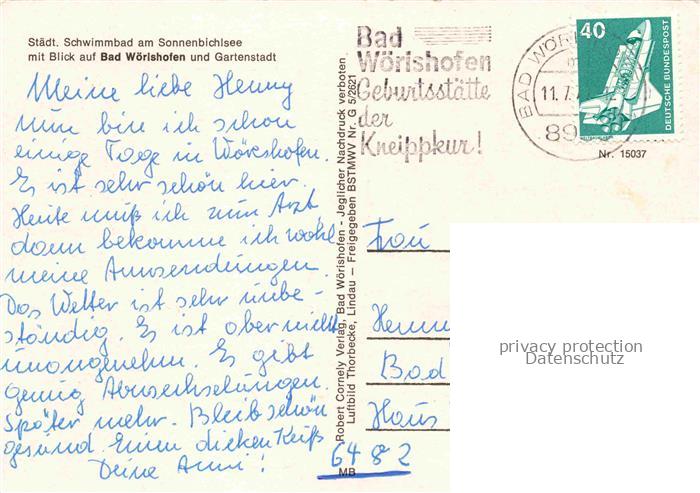 Städt. Schwimmbad am Sonnenbichlsee
mit Blick auf Bad Wörishofen und Gartenstadt
Meine liebe Henny
nun bin ich schon
einige Tage in Wörishofen.
Es ist sehr schön hier.
Heute muß ich zum Arzt,
dann bekomme ich wohl
meine Anwendungen.
Das Wetter ist sehr unbe-
ständig. Es ist aber nicht
unangenehm. Es gibt
genug Abwechselungen.
Später mehr. Bleib schön
gesund. Einen dicken Kuß
Deine Anni!
Robert Cornely Verlag, Bad Wörishofen - Jeglicher Nachdruck verboten
Luftbild Thorbecke, Lindau — Freigegeben BSTMWV Nr. G 5/2621
MB
Bad
Wörishofen
Geburtsstätte
der
Kneippkur!
BAD WÖR
11.7.
89
40
DEUTSCHE BUNDESPOST
Nr. 15037
Frau
Henn
Bad
Haus
6482
privacy protection
Datenschutz